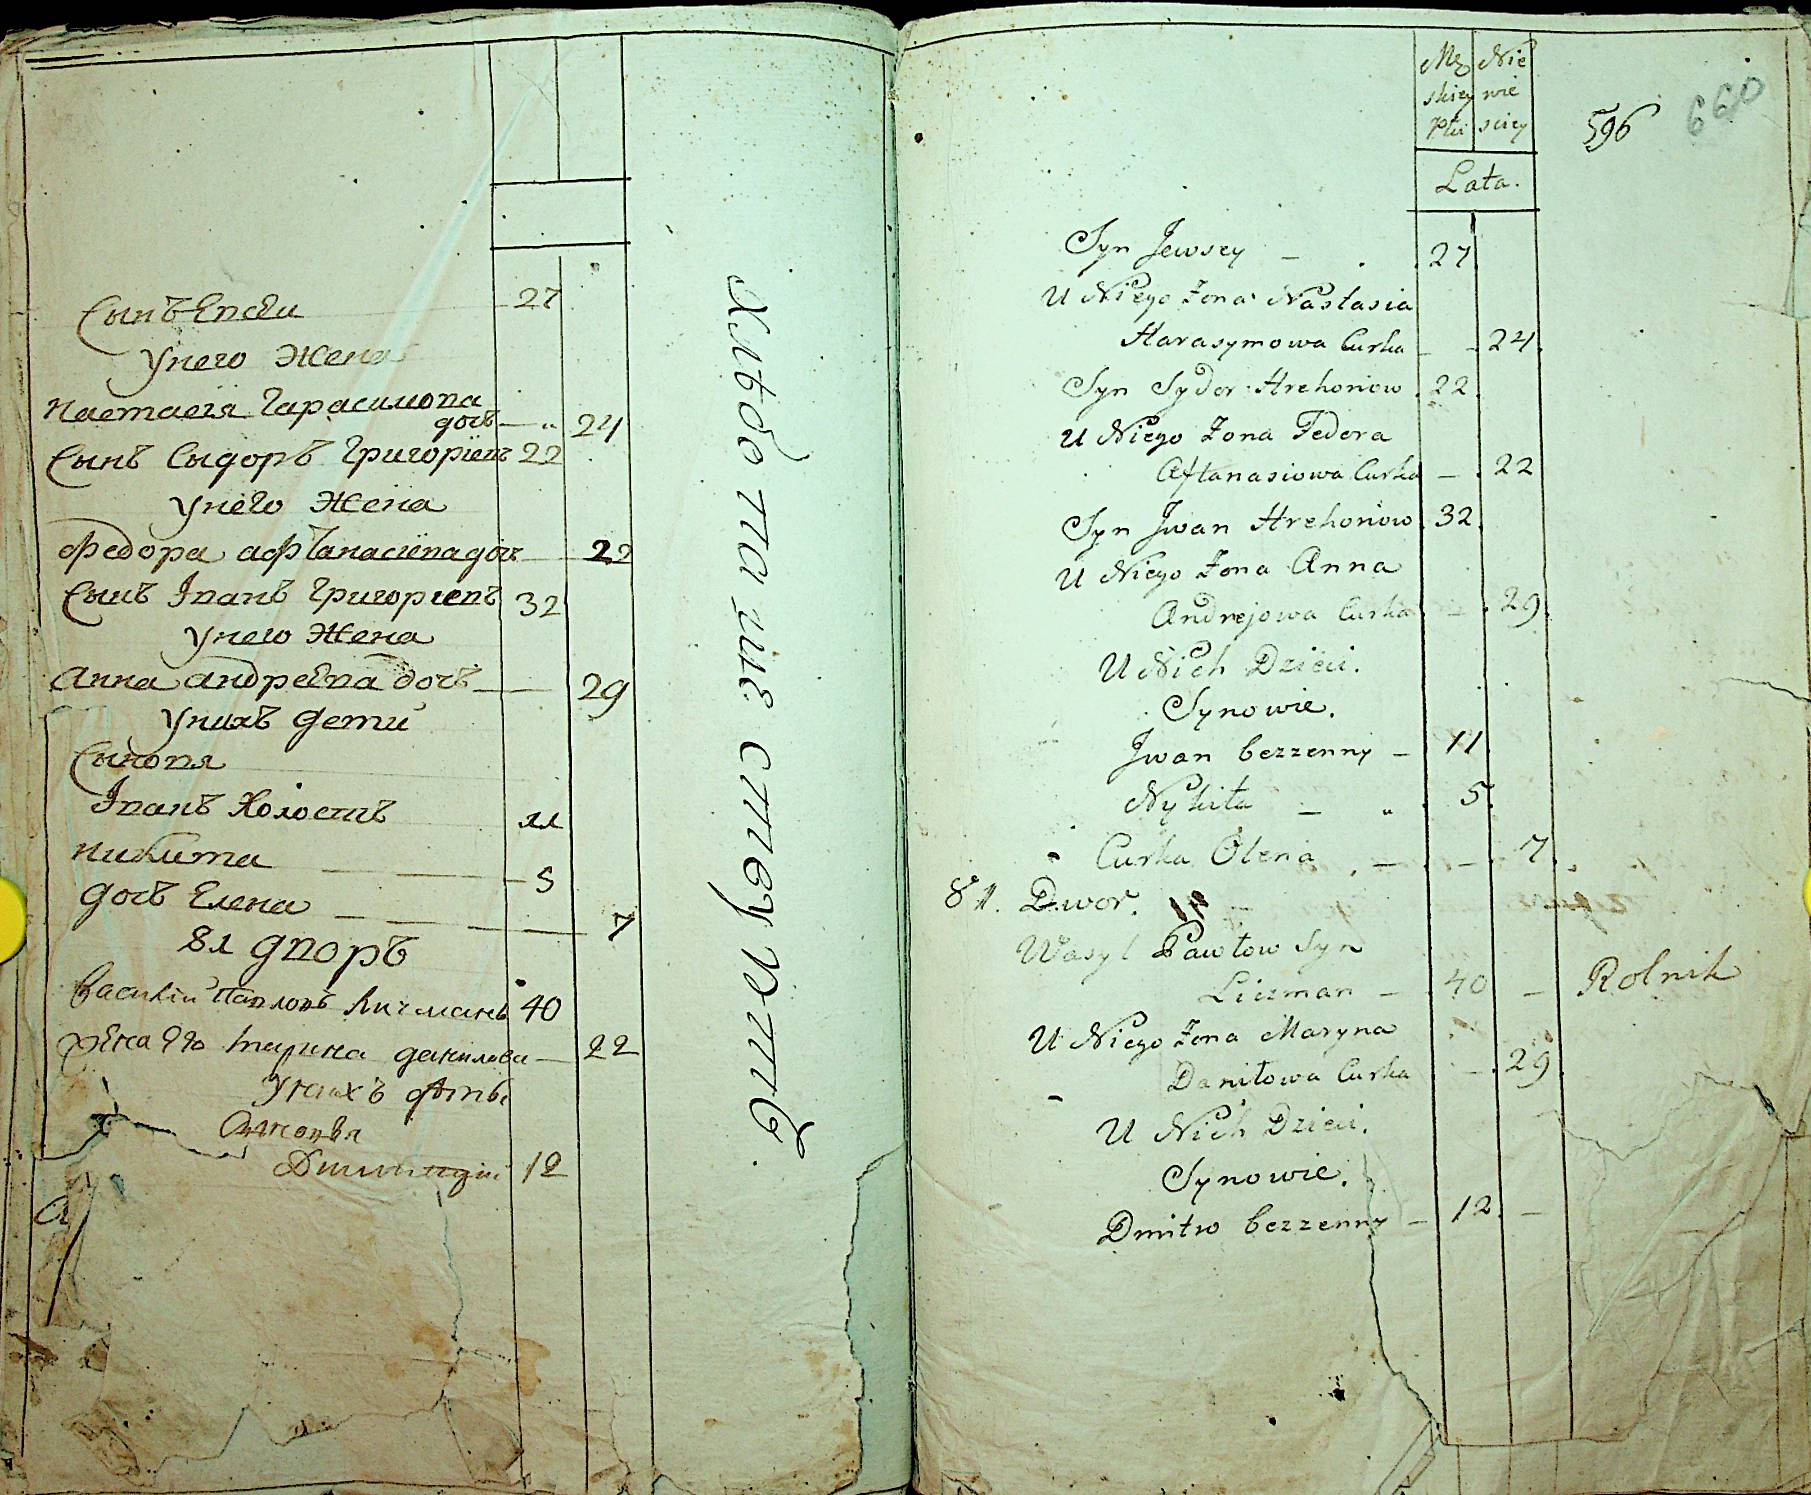 Сынъ Евсѣи 27
Унего Жена
Настасїя Гарасимова
дочъ — 24
Сынъ Сыдоръ Григорїевъ 22
Унего Жена
Федора афтанасїева дочъ — 22
Сынъ Іванъ Григорїевъ 32
Унего Жена
Анна андреева дочъ — 29
Унихъ дети
Сыновя
Іванъ Холостъ 11
никита — 5
дочъ Елена — 7
81 дворъ
Василїй Павловъ Личманъ 40
Жена его Марина данилова — 22
Унихъ дѣти
Сыновя
Дмитрїй 12
Хлебопашествуютъ.
Mę Nie
skiey wie
Płci sciey
596 660
Lata.
Syn Jewsey — 27
U Niego Żona Nastasia
Harasymowa Curka — 24
Syn Sydor Hrehoriow 22
U Niego Żona Fedora
Aftanasiowa Curka — 22
Syn Jwan Hrehoriow 32
U Niego Żona Anna
Andrejowa Curka — 29
U Nich Dzieci.
Synowie.
Jwan bezzenny — 11
Nykita — 5
Curka Olena — 7
81. Dwor.
Wasyl Pawłow Syn
Liczman — 40 — Rolnik
U Niego Żona Maryna
Daniłowa Curka — 29
U Nich Dzieci.
Synowie.
Dmitro bezzenny — 12 —